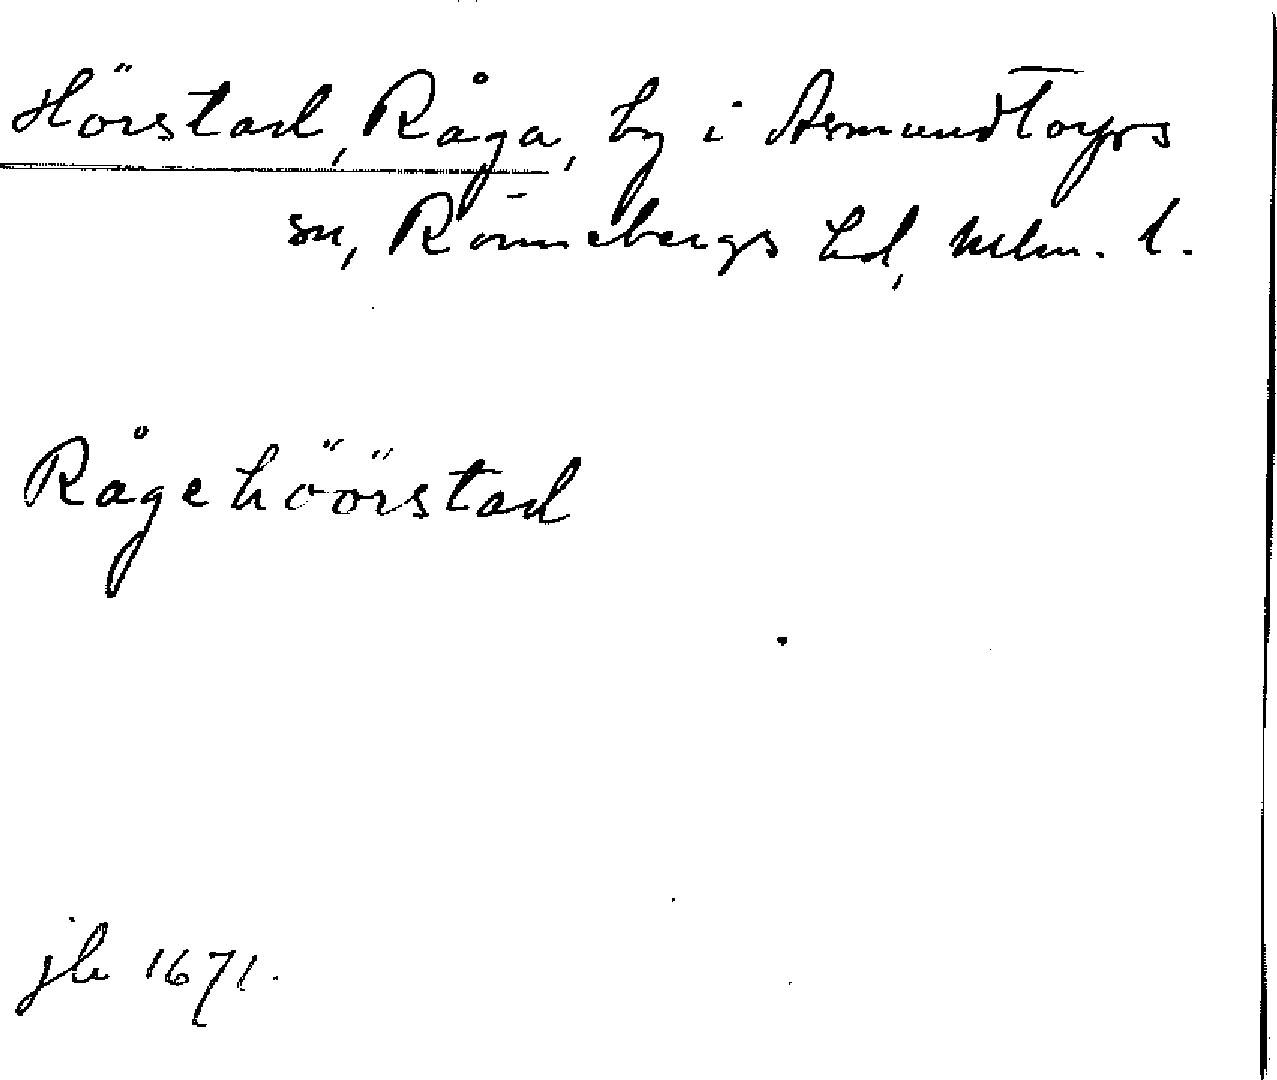 Hörstad, Råga, by i Asmundtorps
sn, Rönnebergs hd, Mlm. l.
Rågehöörstad
jb 1671.